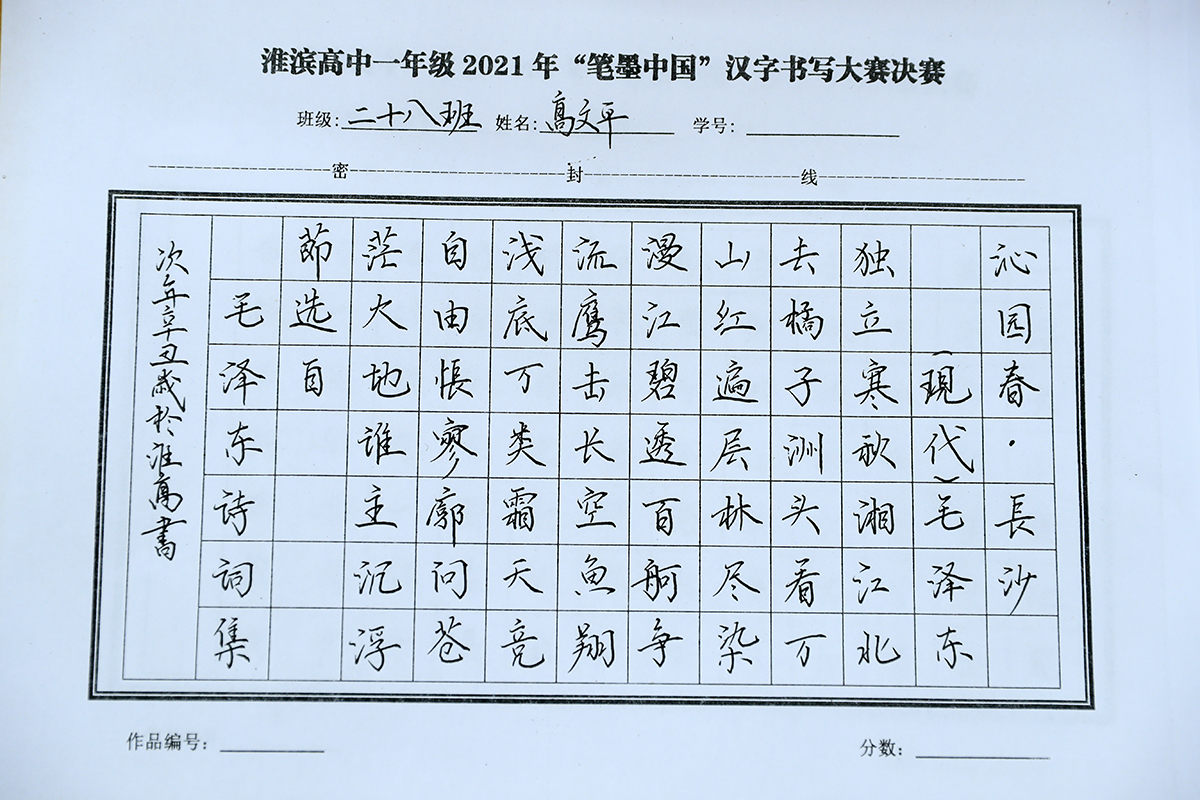 淮滨高中一年级 2021 年“笔墨中国”汉字书写大赛决赛
班级: 二十八班 姓名: 高文平 学号:
密 封 线
沁园春·長沙
(現代)毛泽东
独立寒秋湘江北
去橘子洲头看万
山红遍层林尽染
漫江碧透百舸争
流鹰击长空魚翔
浅底万类霜天竞
自由悵寥廓问苍
茫大地谁主沉浮
節选自
毛泽东诗词集
次年辛丑歲於淮高書
作品编号: 分数: